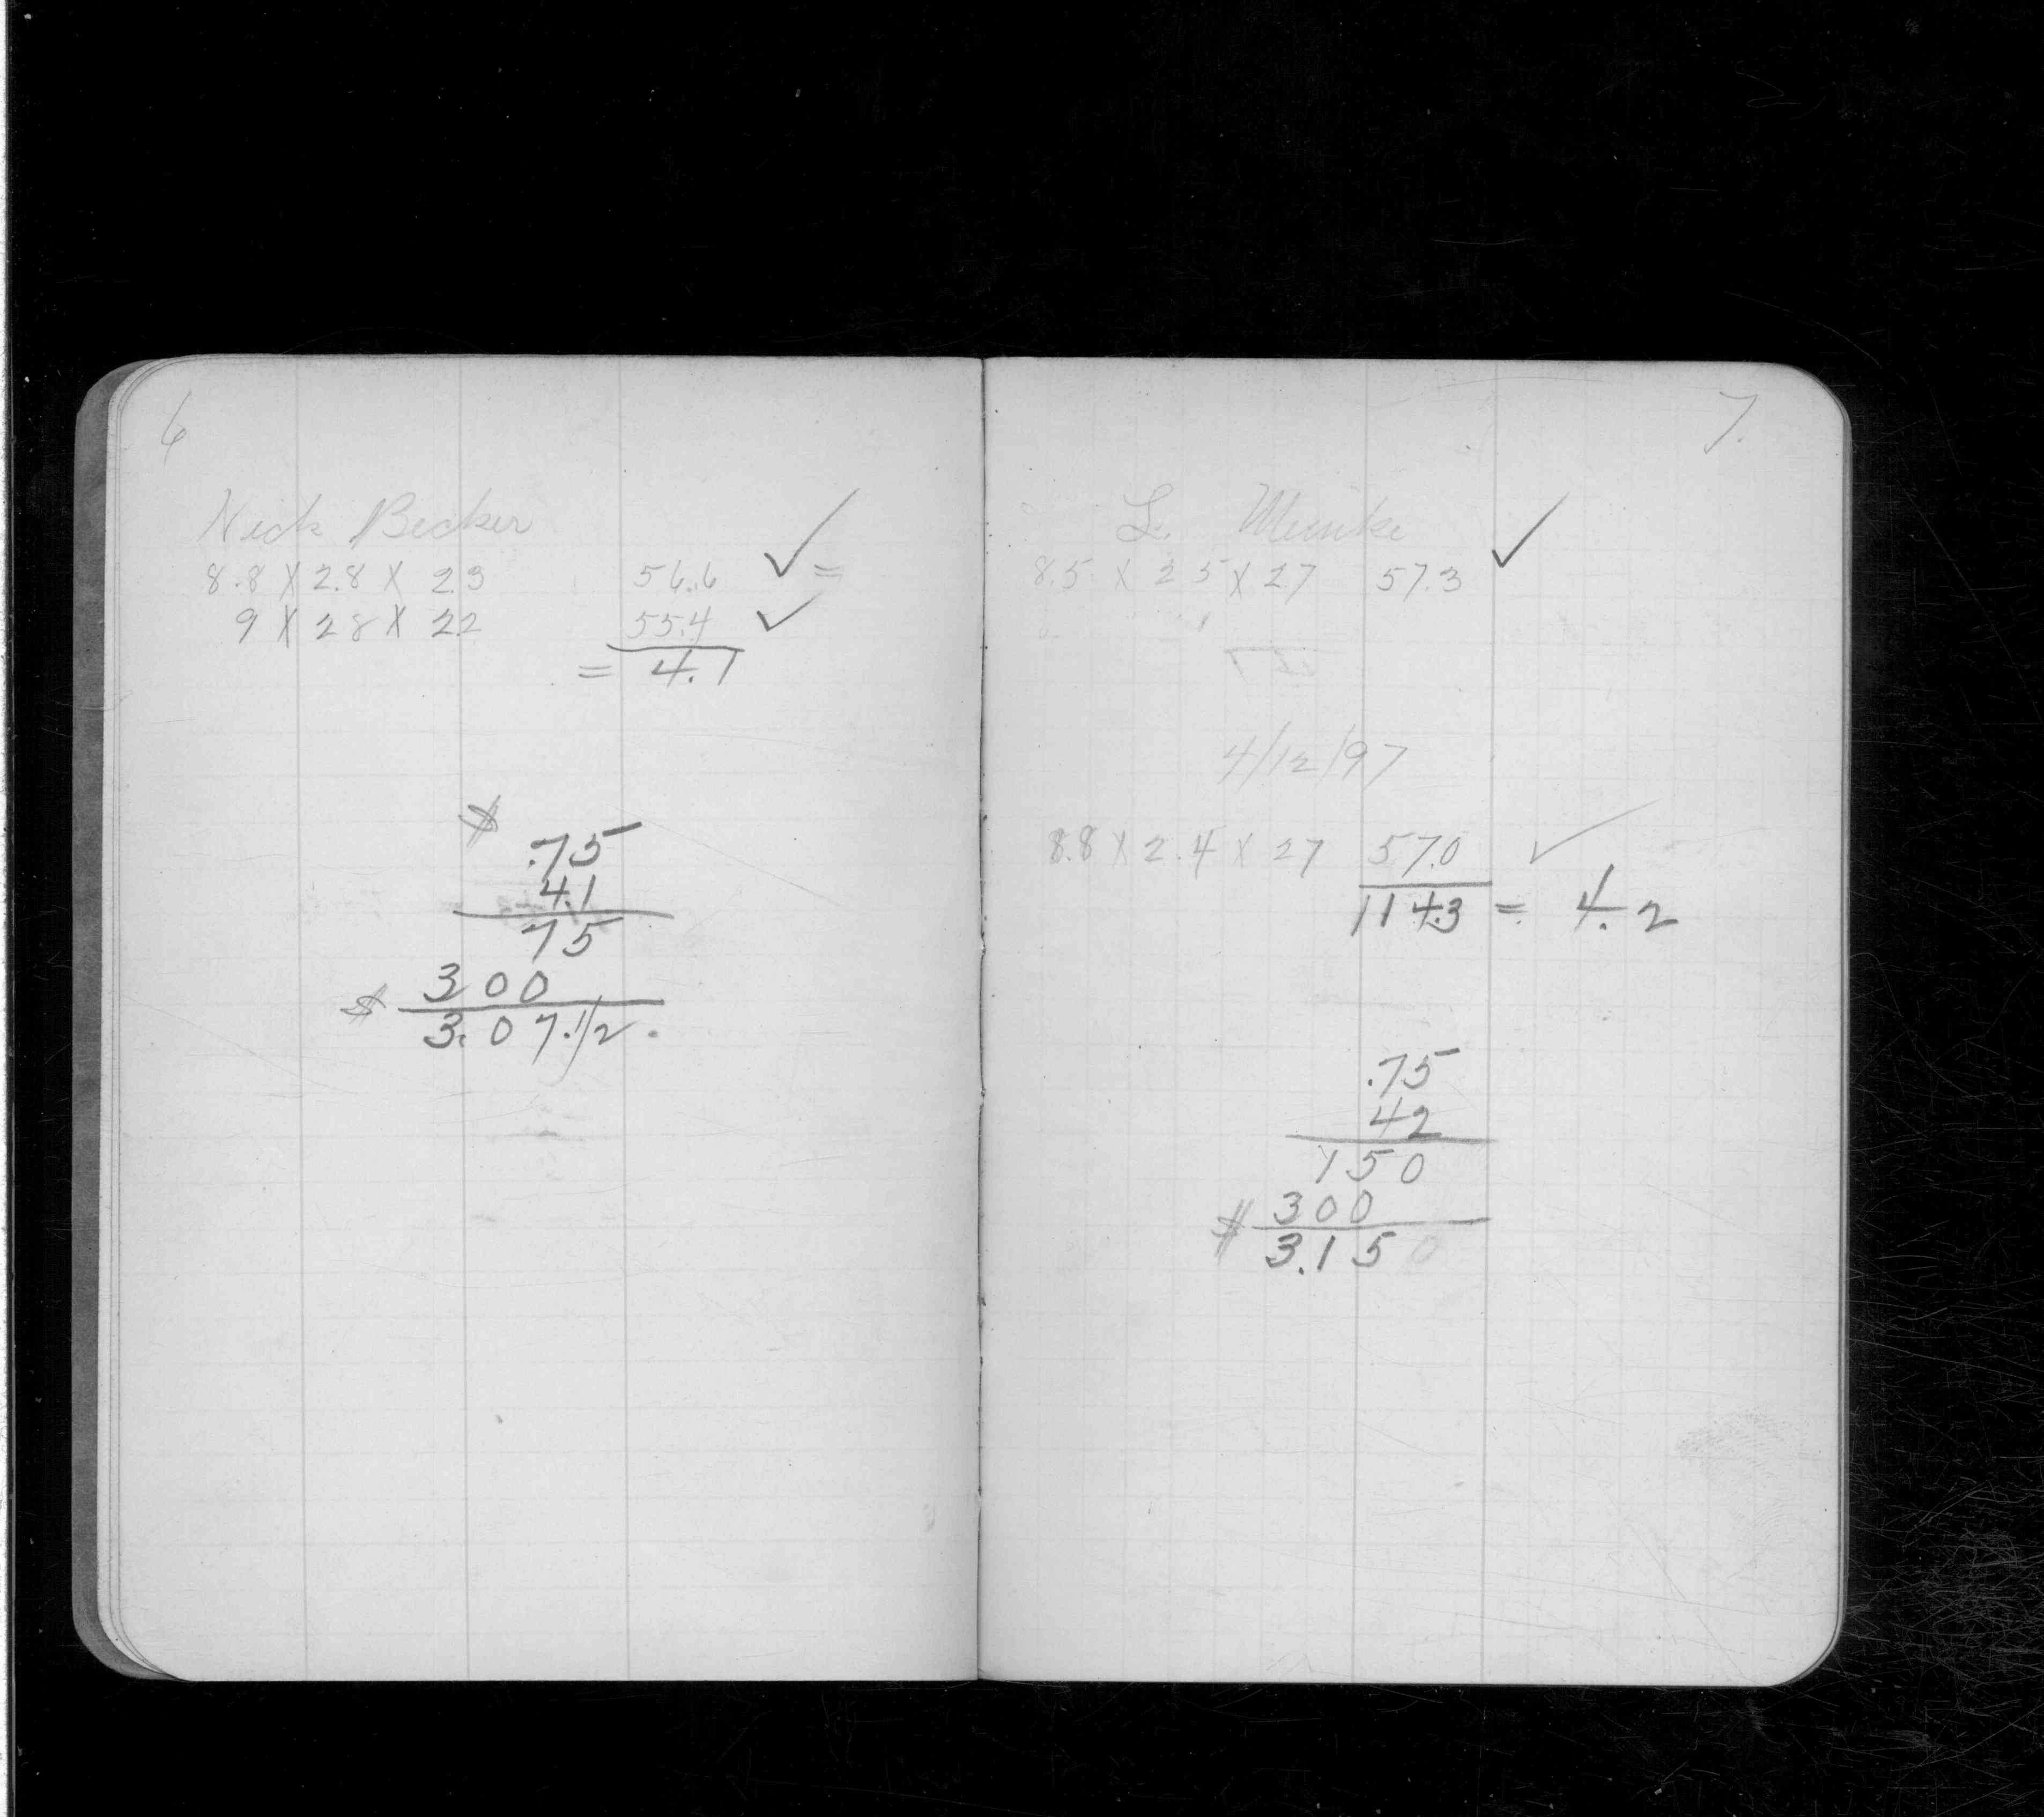 6
Nick Becker
8.8 X 2.8 X 2.3 56.6 ✓ =
9 X 2.8 X 2.2 55.4 ✓
= 4.1
$
.75
4.1
75
300
$ 3.07.1/2.
7.
L. Munke ✓
8.5 X 2.5 X 27 57.3
4/12/97
8.8 X 2.4 X 27 57.0 ✓
114.3 = 4.2
.75
42
150
300
$ 3.150